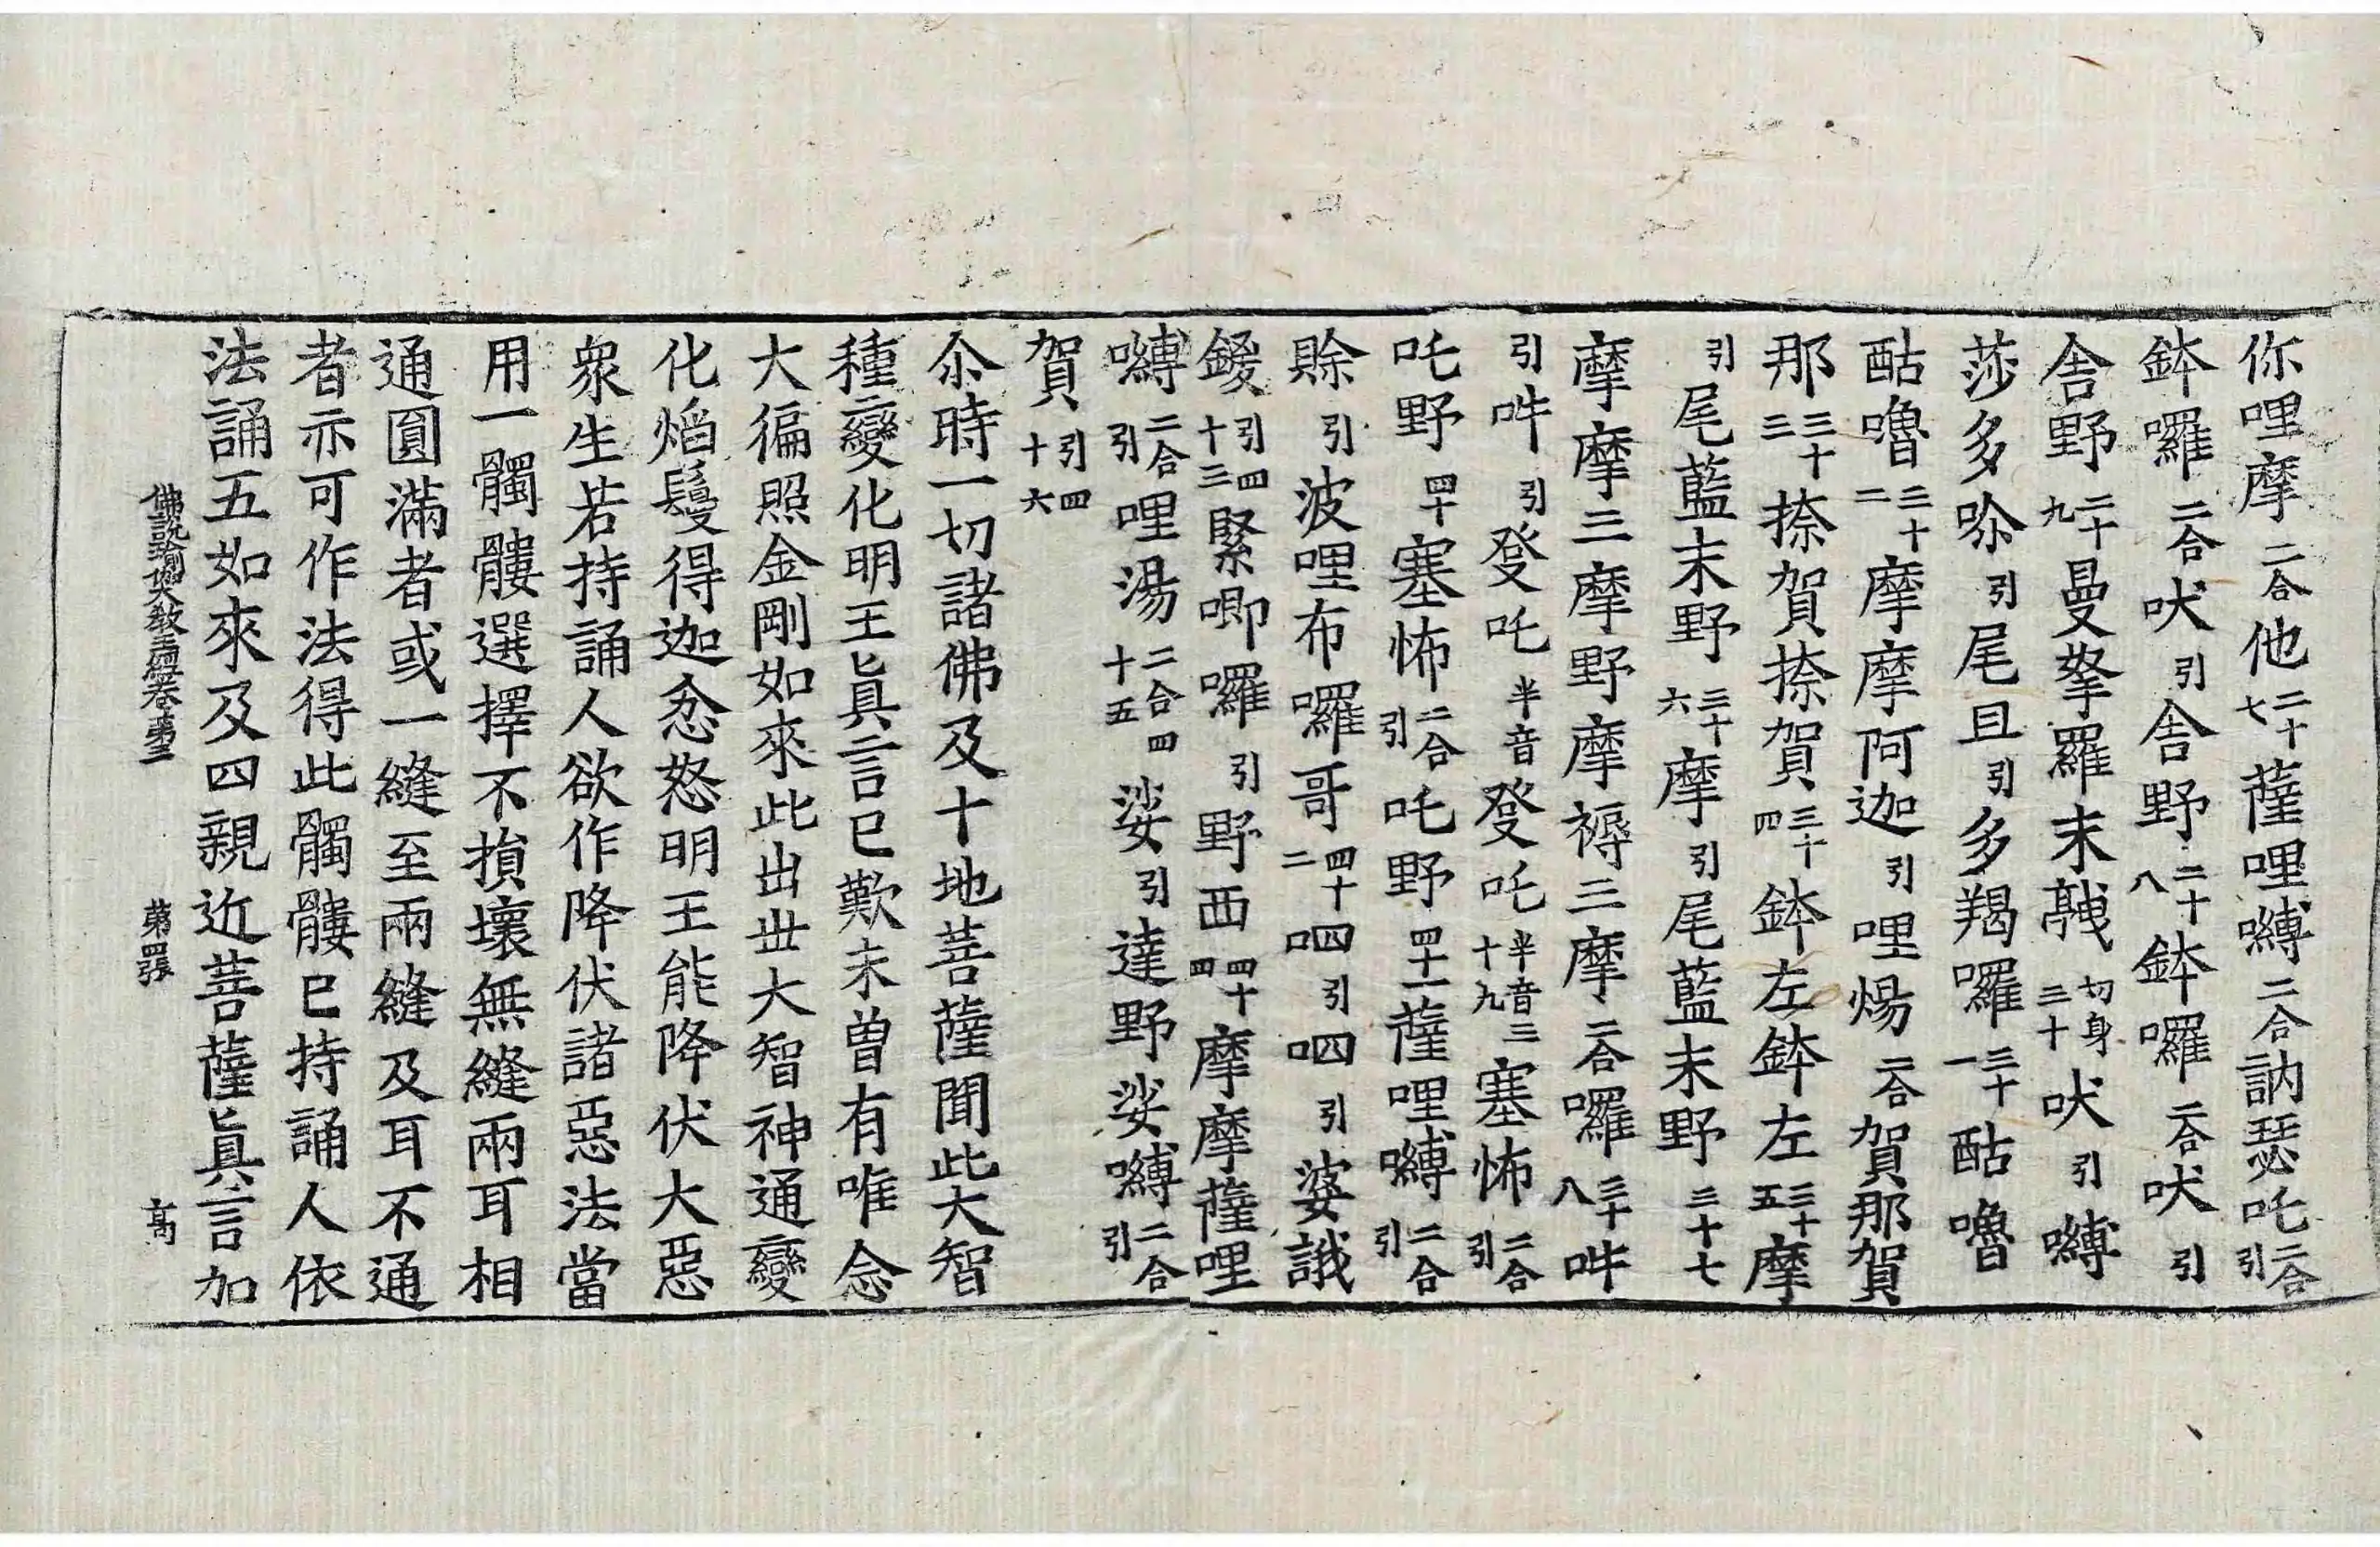 你哩摩二合他二十七薩哩嚩二合訥瑟吒二合引
鉢囉二合吠引舍野二十八鉢囉二合吠引
舍野二十九曼拏羅末𩨨切身三十吠引嚩
莎多哆引尾且引多羯囉三十一酤嚕
酤嚕三十二摩摩阿迦引哩煬二合賀那賀
那三十三捺賀捺賀三十四鉢左鉢左三十五摩
引尾藍末野三十六摩引尾藍末野三十七
摩摩三摩野摩褥三摩二合囉三十八吽
引吽引發吒半音發吒半音三十九塞怖二合引
吒野四十塞怖二合引吒野四十一薩哩嚩二合引
賒引波哩布囉哥四十二呬引呬引婆誐
鍐引四十三緊唧囉引野西四十四摩摩薩哩
嚩二合引哩湯二合四十五娑引達野娑嚩二合引
賀引四十六
尒時一切諸佛及十地菩薩聞此大智
種變化明王眞言已歎未曾有唯念
大徧照金剛如來此出丗大智神通變
化焰鬘得迦忿怒明王能降伏大惡
衆生若持誦人欲作降伏諸惡法當
用一髑髏選擇不損壞無縫兩耳相
通圓滿者或一縫至兩縫及耳不通
者亦可作法得此髑髏已持誦人依
法誦五如來及四親近菩薩眞言加
佛說瑜伽大教王經卷第三 第四張 高